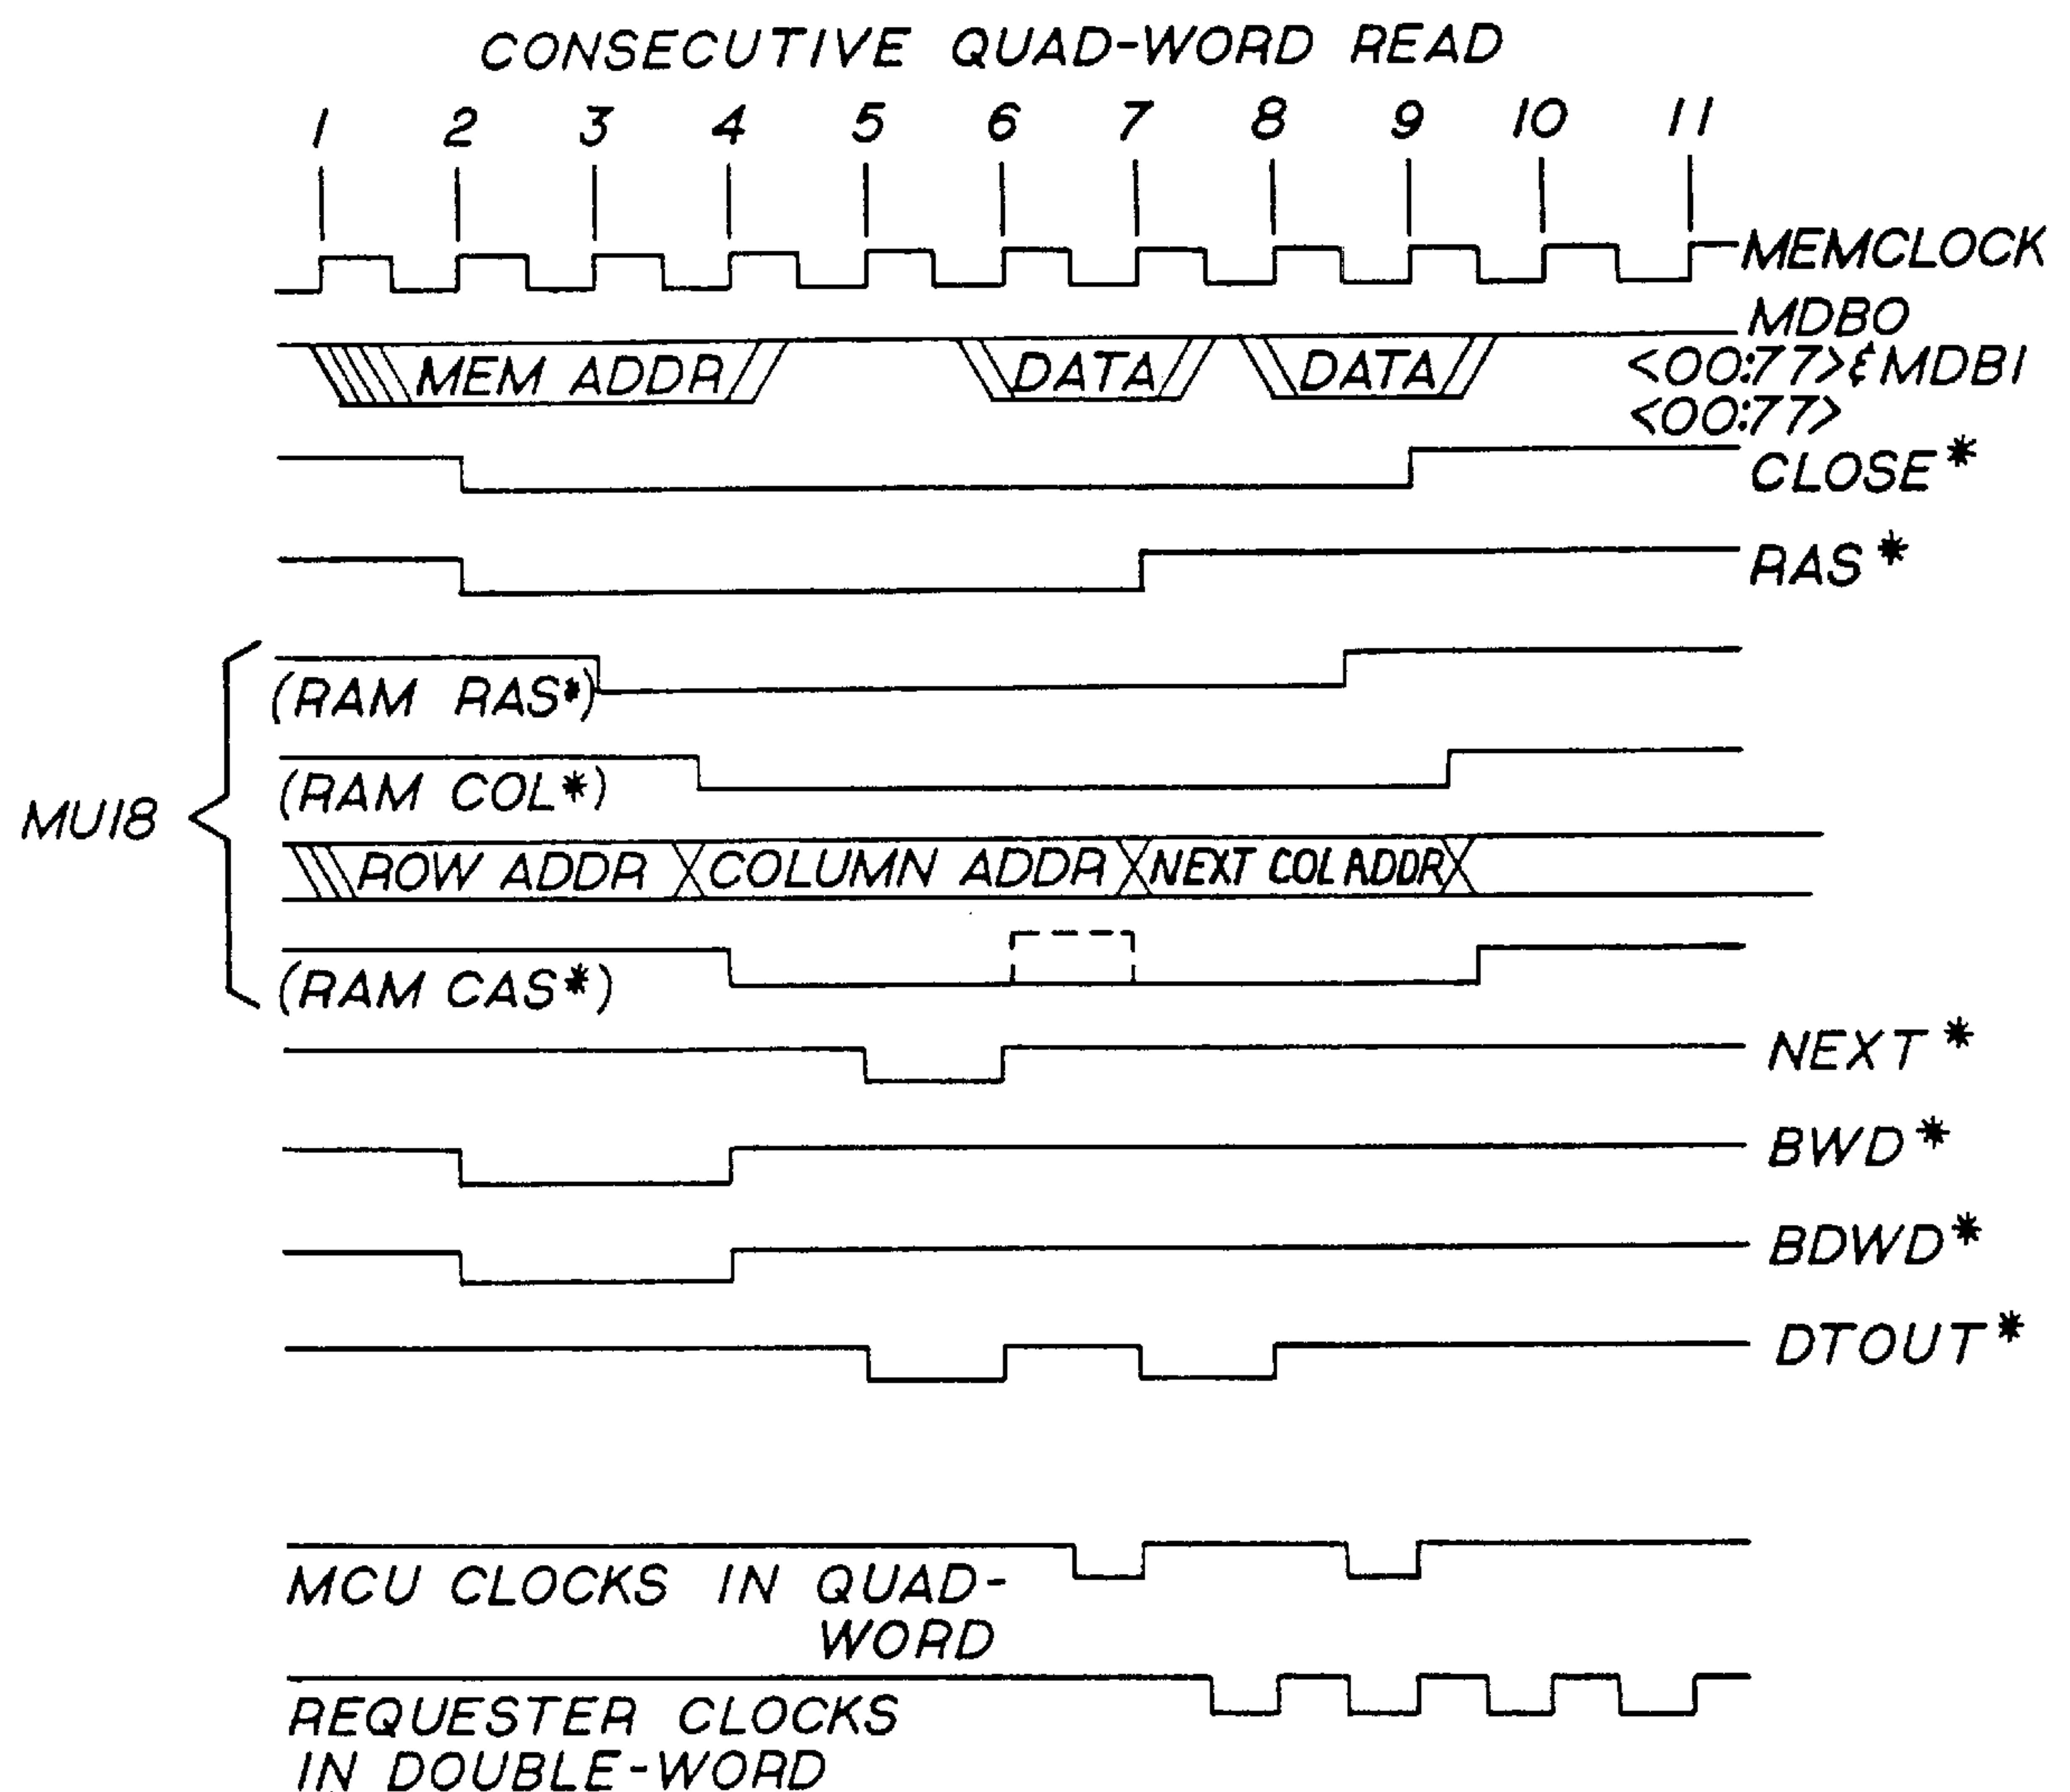 CONSECUTIVE QUAD-WORD READ
1 2 3 4 5 6 7 8 9 10 11
MEMCLOCK
MDBO
<00:77>&MDBI
<00:77>
MEM ADDR DATA DATA
CLOSE*
RAS*
MU18
(RAM RAS*)
(RAM COL*)
ROW ADDR COLUMN ADDR NEXT COL ADDR
(RAM CAS*)
NEXT*
BWD*
BDWD*
DTOUT*
MCU CLOCKS IN QUAD-
WORD
REQUESTER CLOCKS
IN DOUBLE-WORD